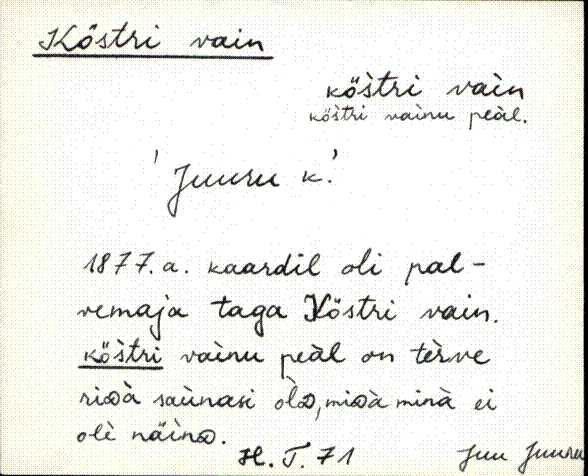 Köstri vain
kös̀tri vaìn
kös̀tri vaìnu peàl.
'Juuru k.'
1877. a. kaardil oli pal-
vemaja taga Köstri vain.
kös̀tri vaìnu peàl on tèrve
saùnasi minà ei
olè
H. T. 71
Juu Juuru